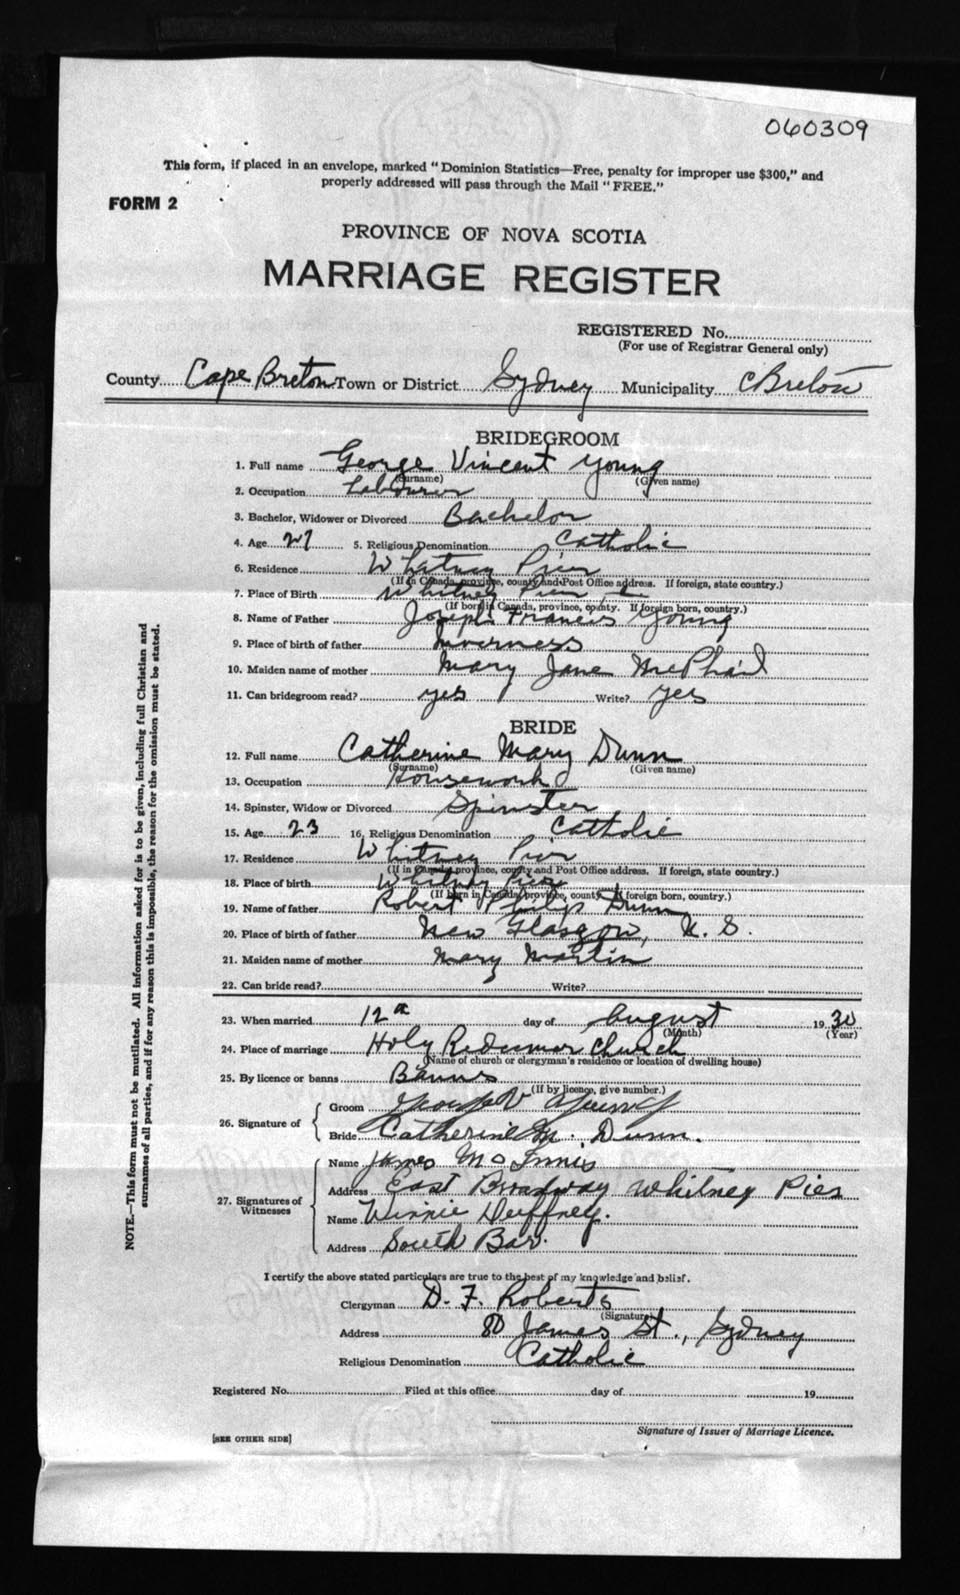 060309
This form, if placed in an envelope, marked "Dominion Statistics—Free, penalty for improper use $300," and
properly addressed will pass through the Mail "FREE."
FORM 2
PROVINCE OF NOVA SCOTIA
MARRIAGE REGISTER
REGISTERED No.
(For use of Registrar General only)
County Cape Breton Town or District Sydney Municipality C Breton
BRIDEGROOM
1. Full name George Vincent Young
(Surname) (Given name)
2. Occupation Labourer
3. Bachelor, Widower or Divorced Bachelor
4. Age 27 5. Religious Denomination Catholic
6. Residence Whitney Pier
(If in Canada, province, county and Post Office address. If foreign, state country.)
7. Place of Birth Whitney Pier
(If born in Canada, province, county. If foreign born, country.)
8. Name of Father Joseph Francis Young
9. Place of birth of father Inverness
10. Maiden name of mother Mary Jane McPhail
11. Can bridegroom read? yes Write? yes
BRIDE
12. Full name Catherine Mary Dunn
(Surname) (Given name)
13. Occupation Housework
14. Spinster, Widow or Divorced Spinster
15. Age 23 16. Religious Denomination Catholic
17. Residence Whitney Pier
(If in Canada, province, county and Post Office address. If foreign, state country.)
18. Place of birth Whitney Pier
(If born in Canada, province, county. If foreign born, country.)
19. Name of father Robert Philip Dunn
20. Place of birth of father New Glasgow, N. S.
21. Maiden name of mother Mary Martin
22. Can bride read? Write?
23. When married 12th day of August 1930
(Month) (Year)
24. Place of marriage Holy Redeemer Church
(Name of church or clergyman's residence or location of dwelling house)
25. By licence or banns Banns
(If by licence, give number.)
26. Signature of Groom George V Young
Bride Catherine M. Dunn.
27. Signatures of Witnesses Name James McInnis
Address East Broadway Whitney Pier
Name Winnie Duffney.
Address South Bar.
I certify the above stated particulars are true to the best of my knowledge and belief.
Clergyman D. F. Roberts
(Signature)
Address 80 James St., Sydney
Religious Denomination Catholic
Registered No. Filed at this office day of 19
Signature of Issuer of Marriage Licence.
[SEE OTHER SIDE]
NOTE.—This form must not be mutilated. All information asked for is to be given, including full Christian and
surnames of all parties, and if for any reason this is impossible, the reason for the omission must be stated.